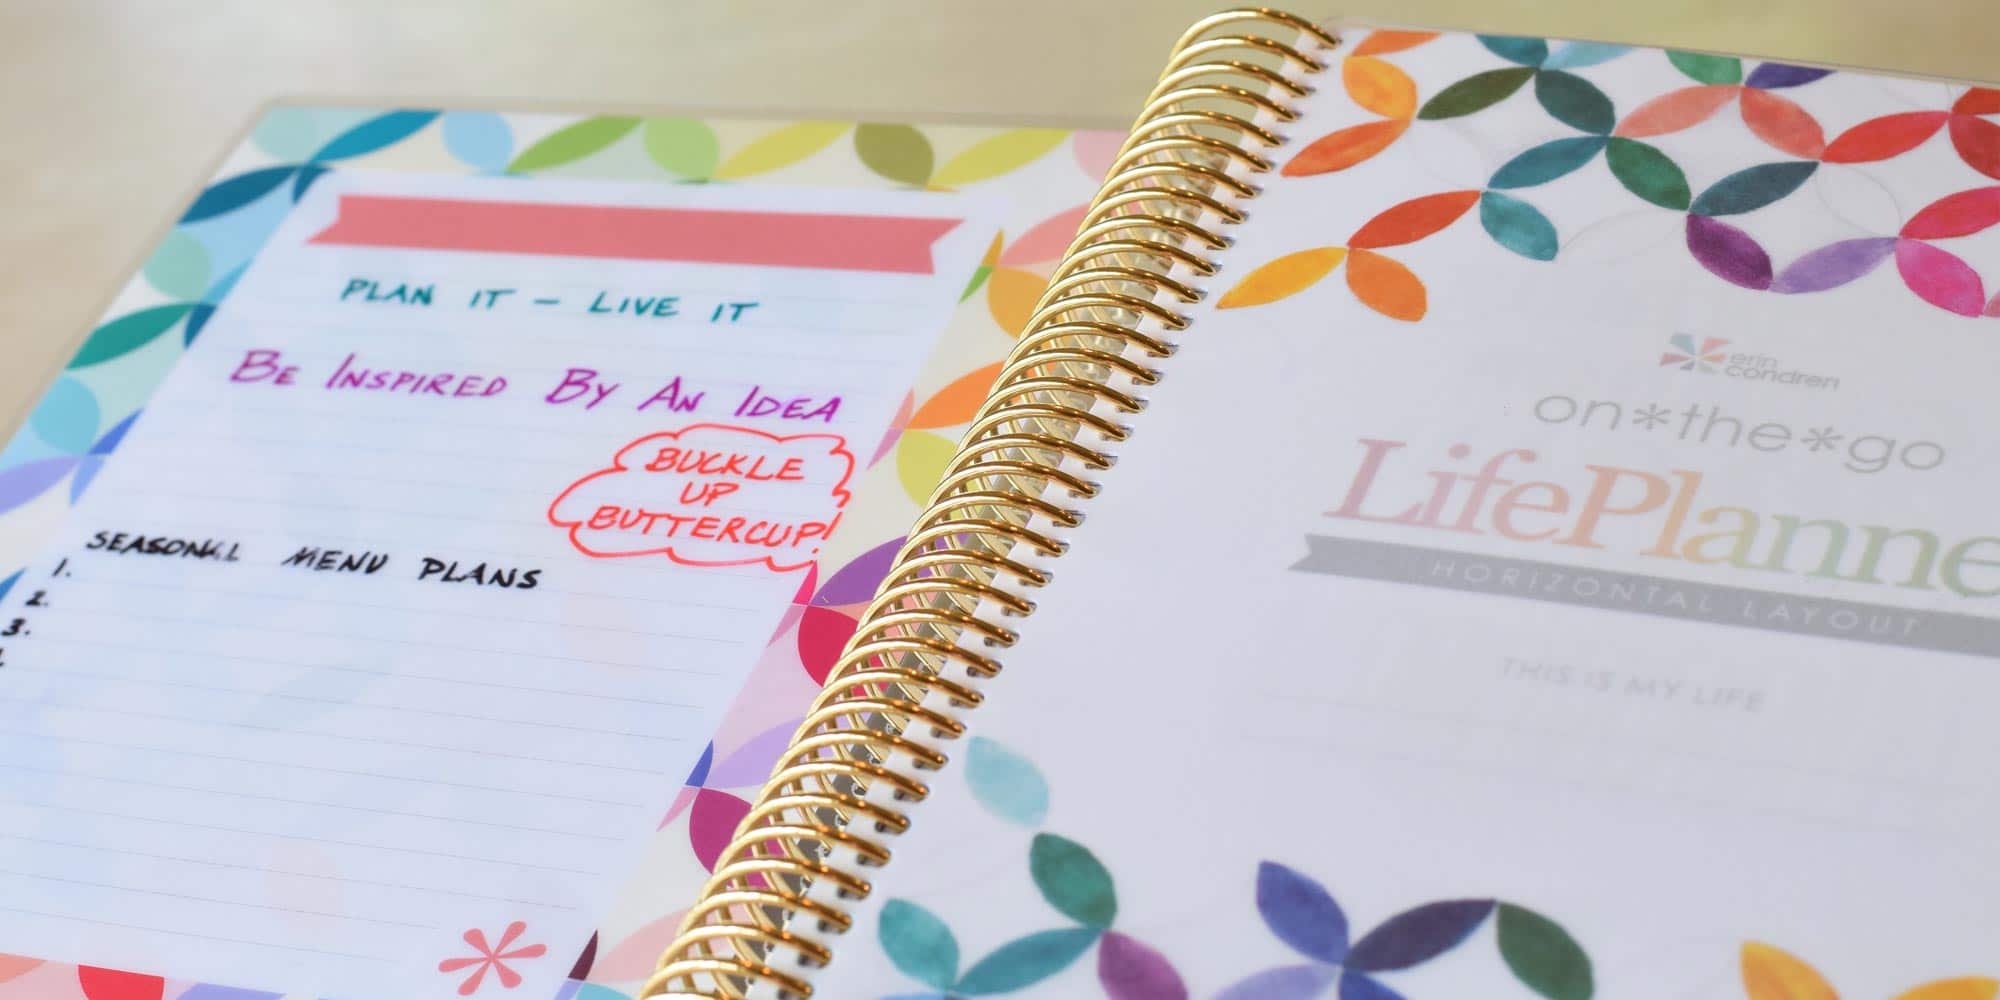 PLAN IT – LIVE IT
BE INSPIRED BY AN IDEA
BUCKLE
UP
BUTTERCUP!
SEASONAL MENU PLANS
1.
2.
3.
erin
condren
on*the*go
LifePlanne
HORIZONTAL LAYOUT
THIS IS MY LIFE